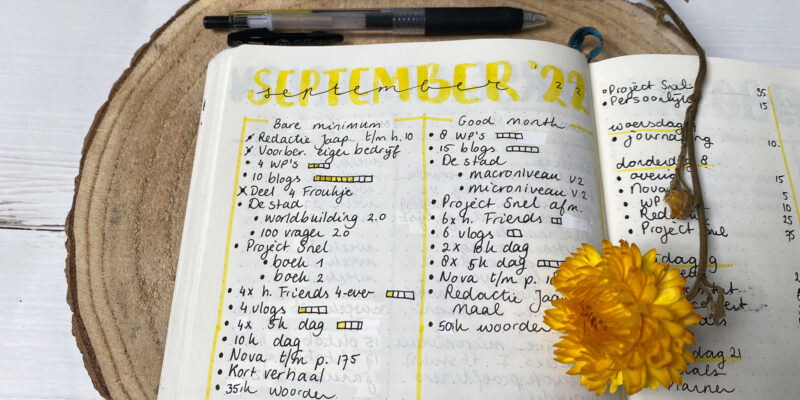 SEPTEMBER '22
september
Bare minimum
Redactie Jaap t/m h.10
Voorber. eigen bedrijf
4 WP's
10 blogs
Deel 4 Froukje
De stad
worldbuilding 2.0
100 vragen 2.0
Project Snel
boek 1
boek 2
4x h. Friends 4-ever
4 vlogs
4x 5k dag
10k dag
Nova t/m p. 175
Kort verhaal
35k woorden
Good month
8 WP's
15 blogs
De stad
macroniveau v2
microniveau v2
Project Snel afm.
6x h. Friends
6 vlogs
2x 10k dag
8x 5k dag
Nova t/m p.
Redactie Jaap
maal
50k woorden
Project Snel
35
Persoonlijk
15
woensdag
journaling
10
donderdag 8
Nova
5
WP
10
Redact
25
Project Snel
75
dag 21